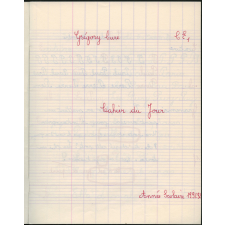 Grégory C.P.1
Cahier du Jour
Année Scolaire